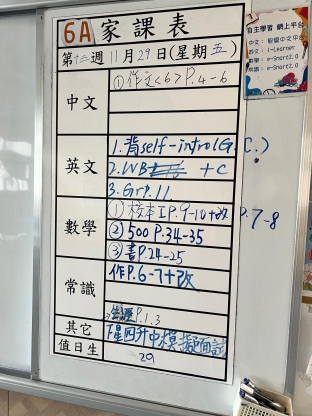 6A 家課表
第十三週 11月29日(星期五)
中文
①作文<6>P.4-6
英文
1.背self-intro(G.C.)
2.WB +C
3.Gr P.11
數學
①校本工P.9-10+改P.7-8
②500 P.34-35
③書P.24-25
常識
作P.6-7+改
其它
P.1.3
星四升中模擬面試
值日生
29
自主學習 網上平台
中文:
英文: i-Learner
數學: e-Smart2.0
常識: e-Smart2.0